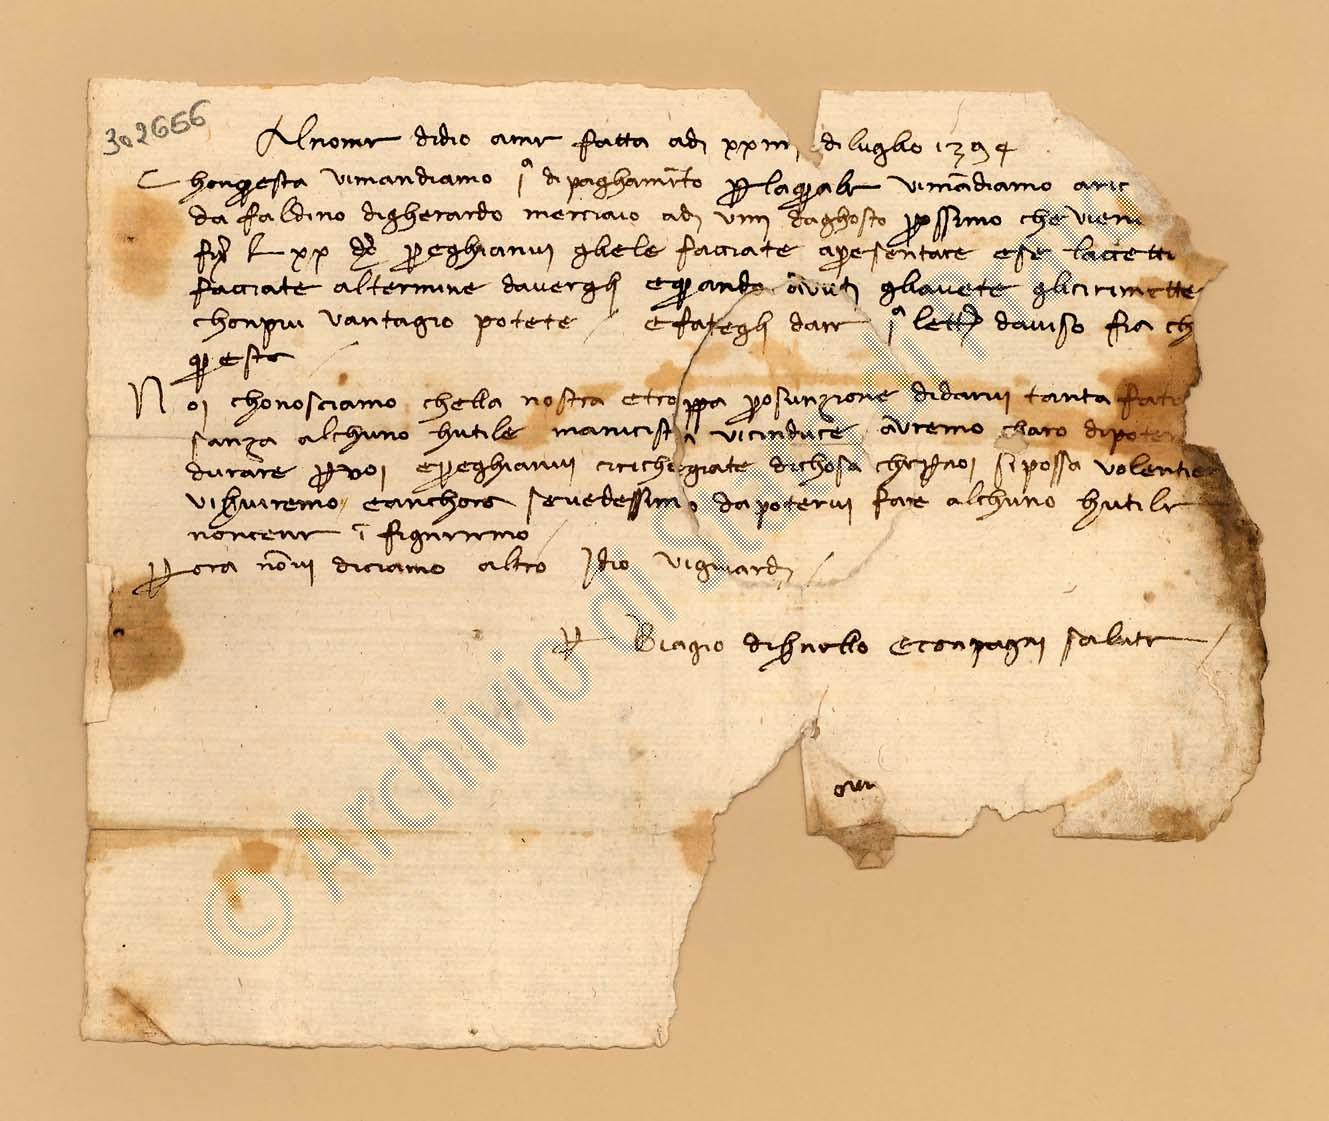 302656
Al nome di dio ame fatta adi xxiiii di luglio 1394
Chonquesta vi mandiamo jª di paghamēto per la quale vi mādiamo a ric
da faldino di gherardo merciaio adi viiii daghosto prossimo che viene
f L xx preghianvi gliele facciate apresentare e se laccetti
facciate al termine davergli e quando avuti gliavete gli ci rimette
chonpiu vantagio potete / e fategli dare jª lettª daviso fra ch
questa
Noi chonosciamo chella nostra e troppa prosunzione di darvi tanta fati
sanza alchuno hutile vi ci induce avremo charo di poter
durare per voi e preghianvi ci richegiate di chosa che per noi si possa volentier
vi serviremo e anchora se vedessimo da potervi fare alchuno hutile
noncene ī figniremo
Per ora nōvi diciamo altro Idio vi guardi /
per Biagio di e conpagni salute
© Archivio di Stato di Prato